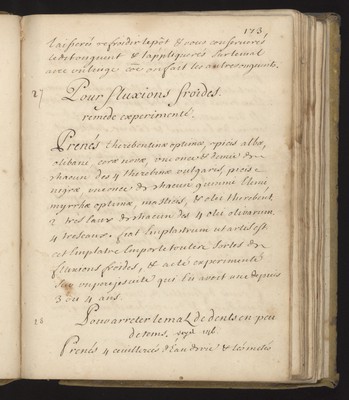 173
laisserés refroidir le pot & vous conserverés
le dit onguent & l'appliquerés sur le mal
avec un linge coe on fait les autres onguents.
27
Pour fluxions froides.
remede experimenté.
Prenés therebentinæ optimæ, picis albæ,
olibani ceræ novæ, une once & demie de
chacun des 4 therebinæ vulgaris, picis
nigræ une once de chacun, gummi Elemi
myrrhæ optimæ, mastices, & olei therebent.
tres eaux de chacun des 4 olei olivarum
4 treseaux. fiat Emplastrum ut artis est
cet Emplatre Emporte toutes sortes de
fluxions froides, & a eté experimenté
sur un pere jesuite qui l'a avoit une depuis
3 ou 4 ans.
28
Pour arreter le mal de dents en peu
de tems.
Prenés 4 cuillerées d'Eau de vie & les metés